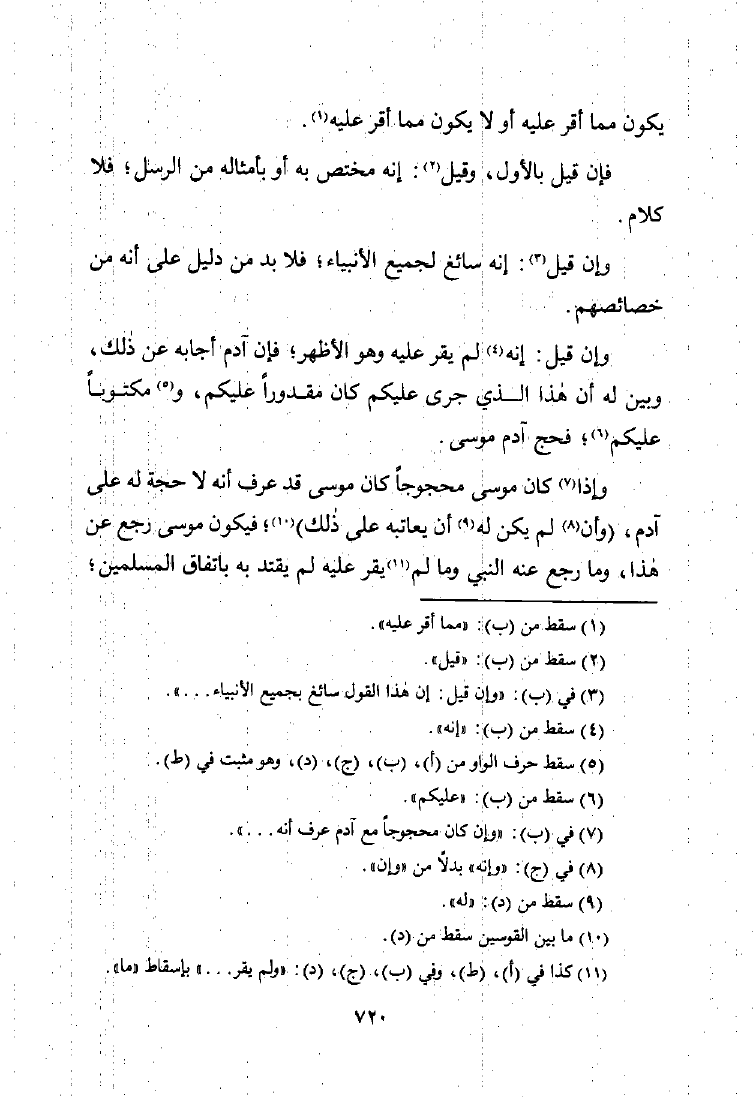 يكون مما أقر عليه أو لا يكون مما أقر عليه(١).
فإن قيل بالأول، وقيل(٢): إنه مختص به أو بأمثاله من الرسل؛ فلا
كلام.
وإن قيل(٣): إنه سائغ لجميع الأنبياء؛ فلا بد من دليل على أنه من
خصائصهم.
وإن قيل: إنه(٤) لم يقر عليه وهو الأظهر؛ فإن آدم أجابه عن ذٰلك،
وبين له أن هٰذا الـذي جرى عليكم كان مقـدوراً عليكم، و(٥) مكتـوبـاً
عليكم(٦)؛ فحج آدم موسى.
وإذا(٧) كان موسى محجوجاً كان موسى قد عرف أنه لا حجة له على
آدم، (وأن(٨) لم يكن له(٩) أن يعاتبه على ذٰلك)(١٠)؛ فيكون موسى رجع عن
هٰذا، وما رجع عنه النبي وما لم(١١) يقر عليه لم يقتد به باتفاق المسلمين؛
(١) سقط من (ب): «مما أقر عليه».
(٢) سقط من (ب): «قيل».
(٣) في (ب): «وإن قيل: إن هٰذا القول سائغ بجميع الأنبياء...».
(٤) سقط من (ب): «إنه».
(٥) سقط حرف الواو من (أ)، (ب)، (ج)، (د)، وهو مثبت في (ط).
(٦) سقط من (ب): «عليكم».
(٧) في (ب): «وإن كان محجوجاً مع آدم عرف أنه...».
(٨) في (ج): «وإنه» بدلًا من «وإن».
(٩) سقط من (د): «له».
(١٠) ما بين القوسين سقط من (د).
(١١) كذا في (أ)، (ط)، وفي (ب)، (ج)، (د): «ولم يقر...» بإسقاط «ما».
٧٢٠